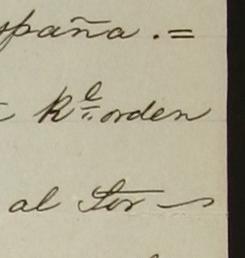 spaña . =
Rl orden
al Sor